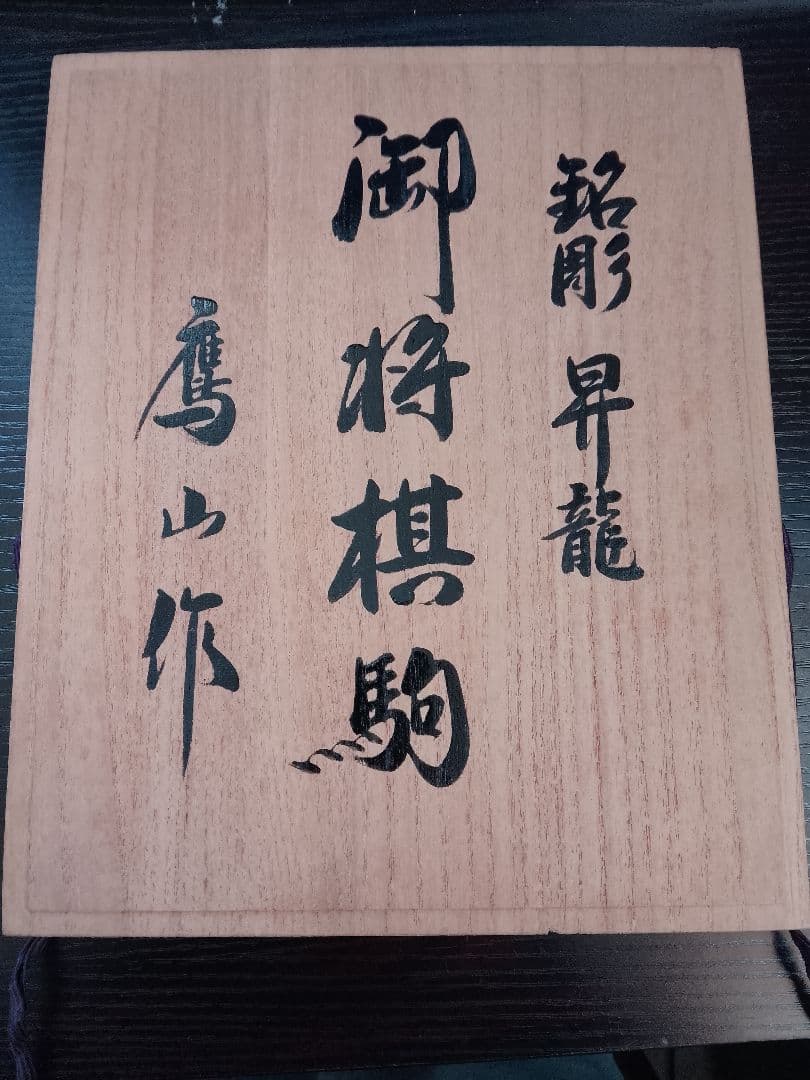 銘彫 昇龍
御将棋駒
鷹山作